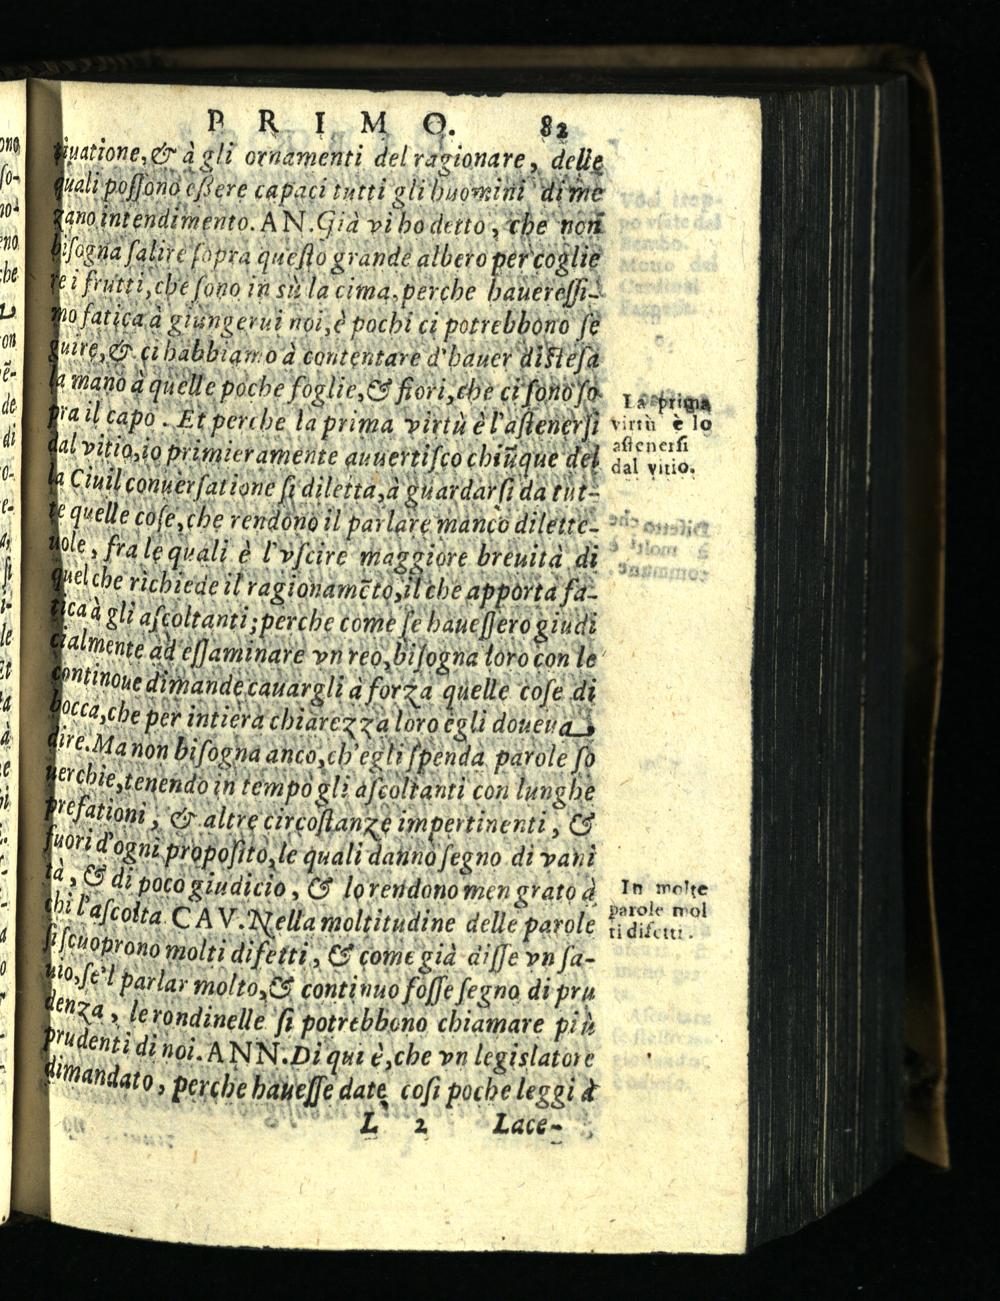 PRIMO. 82
tiuatione, & à gli ornamenti del ragionare, delle
quali poſſono eßere capaci tutti gli huomini di me
zano intendimento. AN. Già vi ho detto, che non
biſogna ſalire ſopra queſto grande albero per coglie
re i frutti, che ſono in sù la cima, perche hauereſſi-
mo fatica à giungerui noi, è pochi ci potrebbono ſe
guire, & ci habbiamo à contentare d'hauer diſteſa
la mano à quelle poche foglie, & fiori, che ci ſono ſo
pra il capo. Et perche la prima virtù è l'aſtenerſi
dal vitio, io primieramente auuertiſco chiũque del
la Ciuil conuerſatione ſi diletta, à guardarſi da tut-
te quelle coſe, che rendono il parlare manco dilette-
uole, fra le quali è l'vſcire maggiore breuità di
quel che richiede il ragionamẽto, il che apporta fa-
tica à gli aſcoltanti; perche come ſe haueſſero giudi
cialmente ad eſſaminare vn reo, biſogna loro con le
continoue dimande cauargli à forza quelle coſe di
bocca, che per intiera chiarezza loro egli doueua
dire. Ma non biſogna anco, ch'egli ſpenda parole ſo
uerchie, tenendo in tempo gli aſcoltanti con lunghe
prefationi, & altre circoſtanze impertinenti, &
fuori d'ogni propoſito, le quali danno ſegno di vani
tà, & di poco giudicio, & lo rendono men grato à
chi l'aſcolta. CAV. Nella moltitudine delle parole
ſi ſcuoprono molti difetti, & come già diſſe vn ſa-
uio, ſe'l parlar molto, & continuo foſſe ſegno di pru
denza, le rondinelle ſi potrebbono chiamare più
prudenti di noi. ANN. Di qui è, che vn legislatore
dimandato, perche haueſſe date coſi poche leggi à
L 2 Lace-
La prima
virtù è lo
aſtenerſi
dal vitio.
In molte
parole mol
ti difetti.